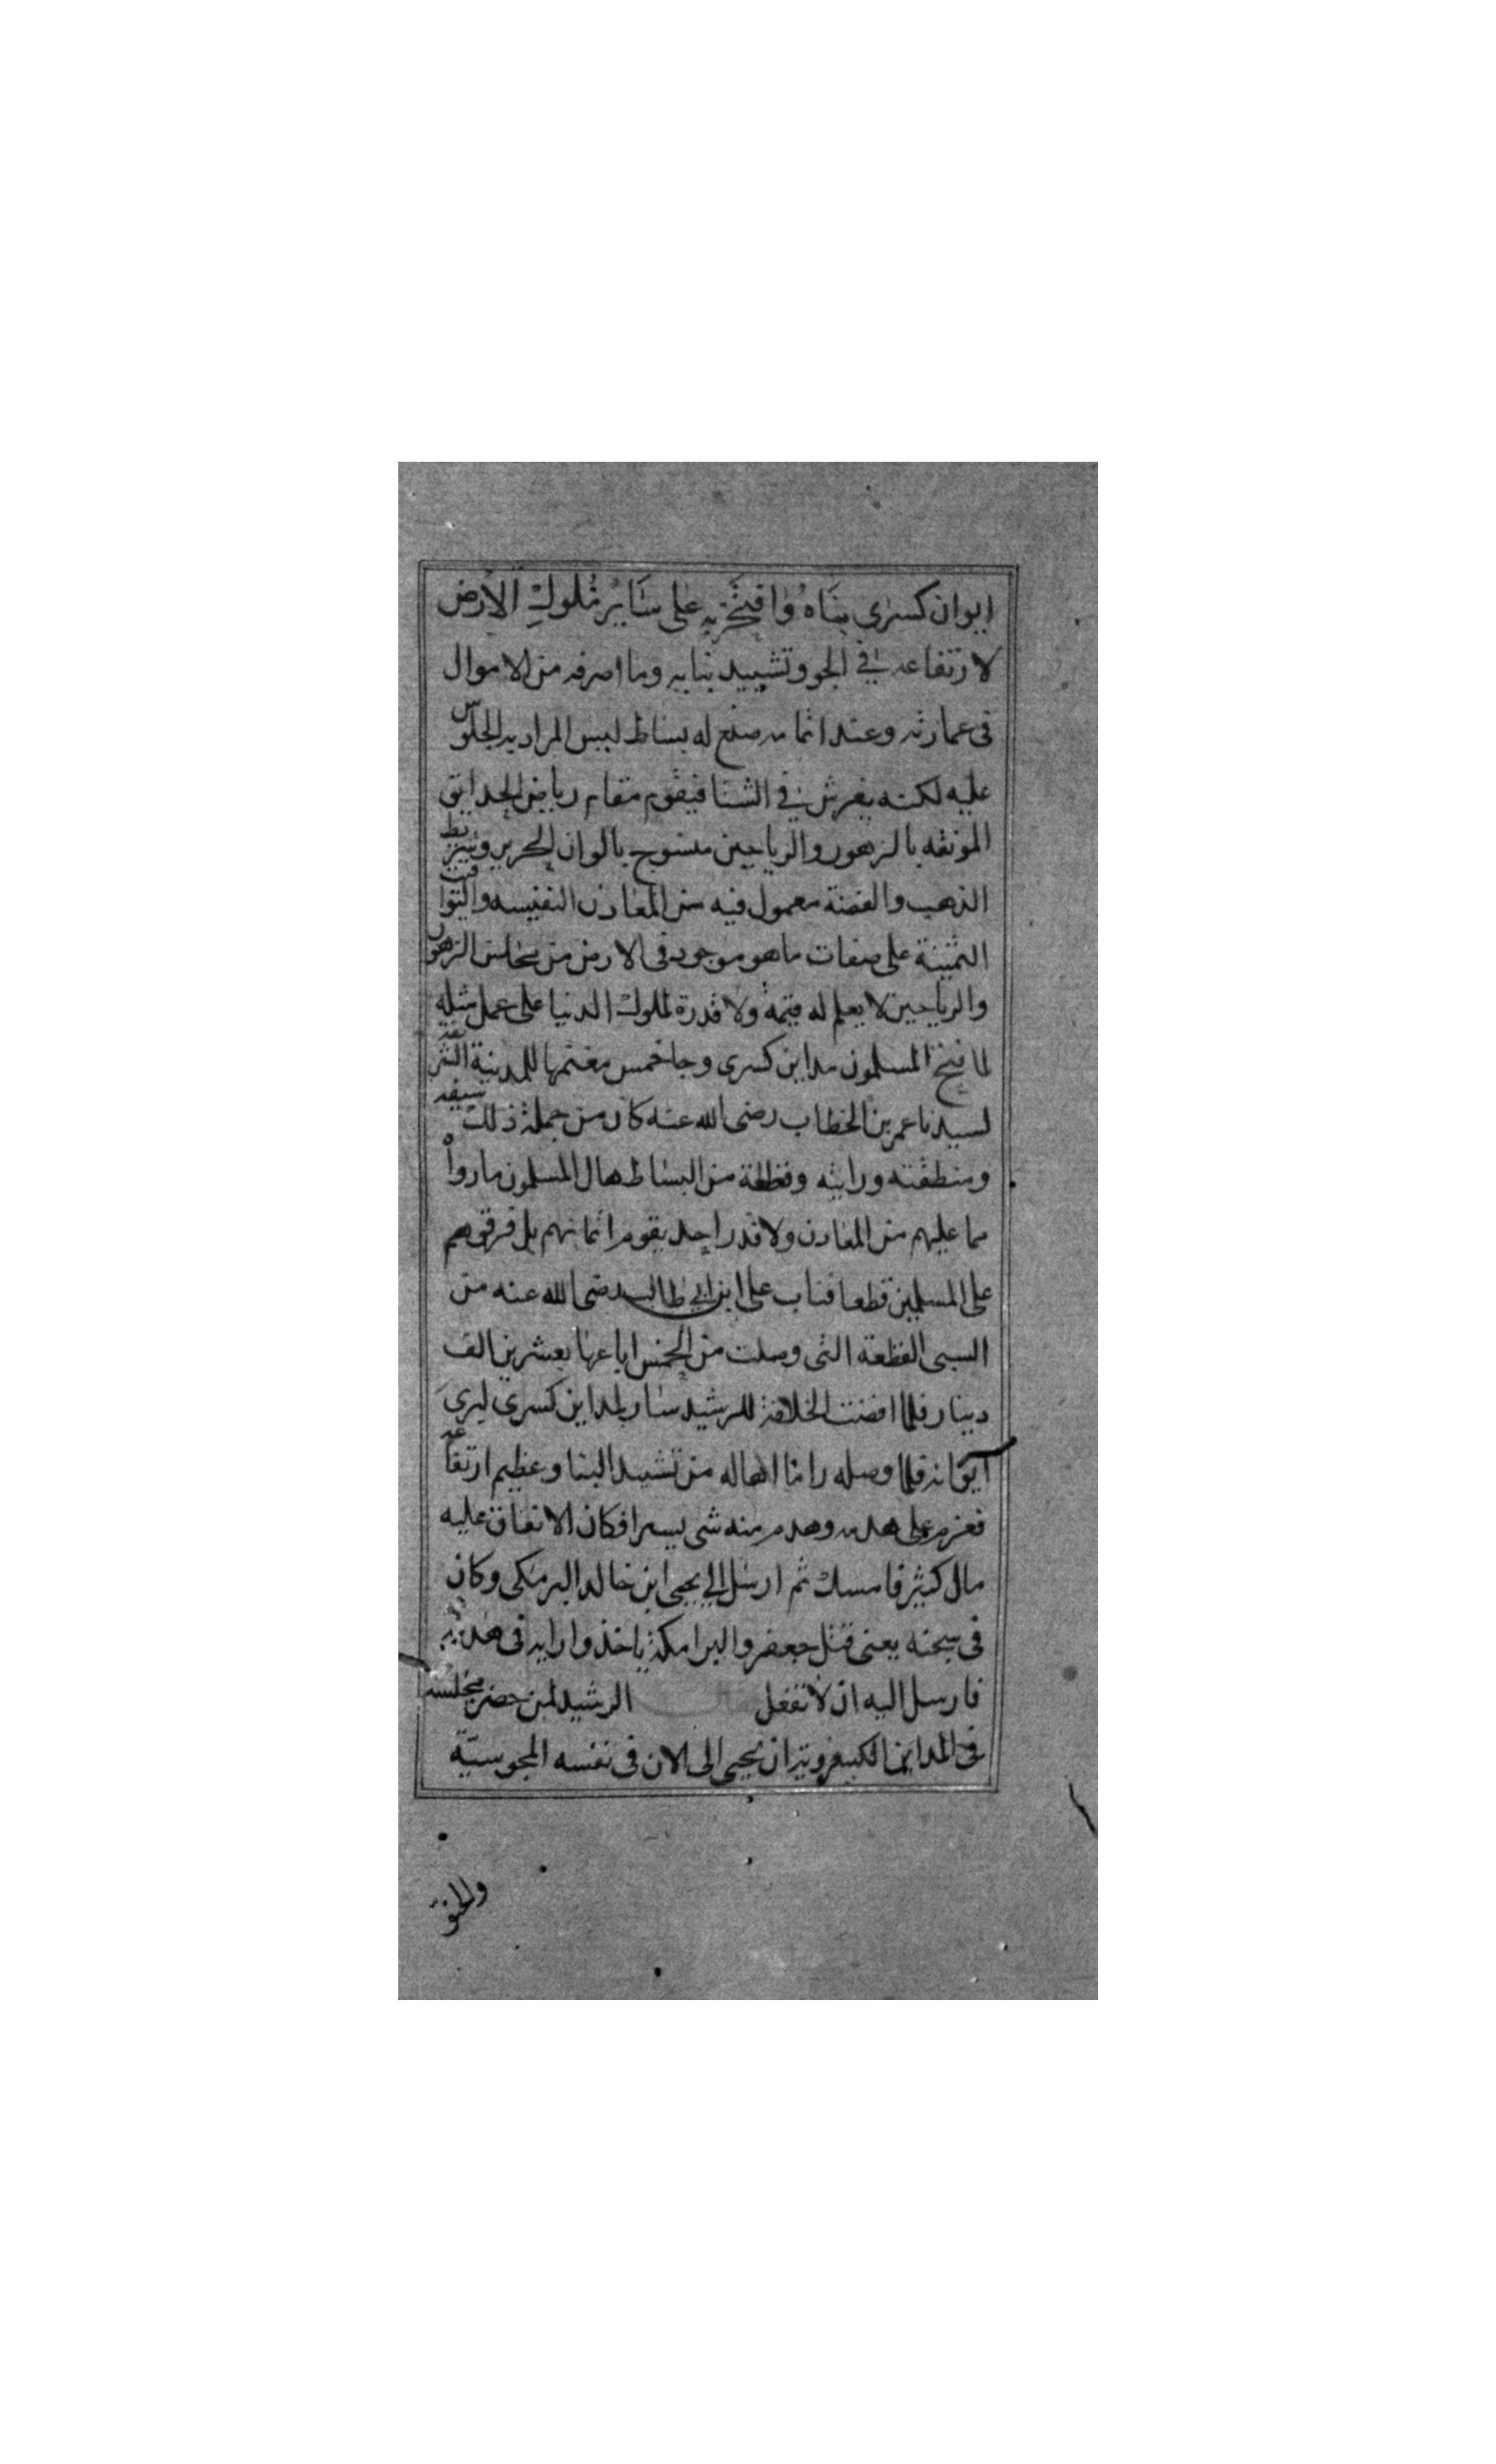 ايوان كسرى بناه وافتخر به على ساير ملوك الارض
لارتفاعه في الجو وتشييد بنايه وما اصرفه من الاموال
فى عمارته وعند اتمامه صنع له بساط ليس المراد به الجلوس
عليه لكنه يفرش في الشتا فيقوم مقام رياض الحدايق
المونقه بالزهور والرياحين منسوج بالوان الحرير وشريط
الذهب والفضة معمول فيه من المعادن النفيسه واليواقيت
الثمينة على صفات ما هو موجود فى الارض من محاسن الزهور
والرياحين لا يعلم له قيمة ولا قدرة لملوك الدنيا على عمل مثله
لما فتح المسلمون مداين كسرى وجا خمس مغنمها للمدينة الشريفه
لسيدنا عمر بن الخطاب رضى الله عنه كان من جملة ذلك سيفه
ومنطقته ورايته وقطعة من البساط هال المسلمون ما رواه
مما عليهم من المعادن ولا قدر احد يقوم اثمانهم بل فرقوهم
على المسلمين قطعا فناب على ابن ابي طالب رضى الله عنه من
السبى القطعة التى وصلت من الخمس اباعها بعشرين الف
دينار فلما افضت الخلافة للرشيد سار لمداين كسرى ليرى
ايوانه فلما وصله راى ما اهاله من تشييد البنا وعظيم ارتفاعه
فعزم على هدمه وهدم منه شى يسرا فكان الانفاق عليه
مال كثير فامسك ثم ارسل الي يحيى ابن خالد البرمكى وكان
فى سجنه يعنى قتل جعفر والبرامكة ياخذوا رايه فى هدمه
فارسل اليه ان لا تفعل الرشيد لمن حضر بمجلسه
فى المداين ان يحيى الى الان فى نفسه المجوسية
والحنو